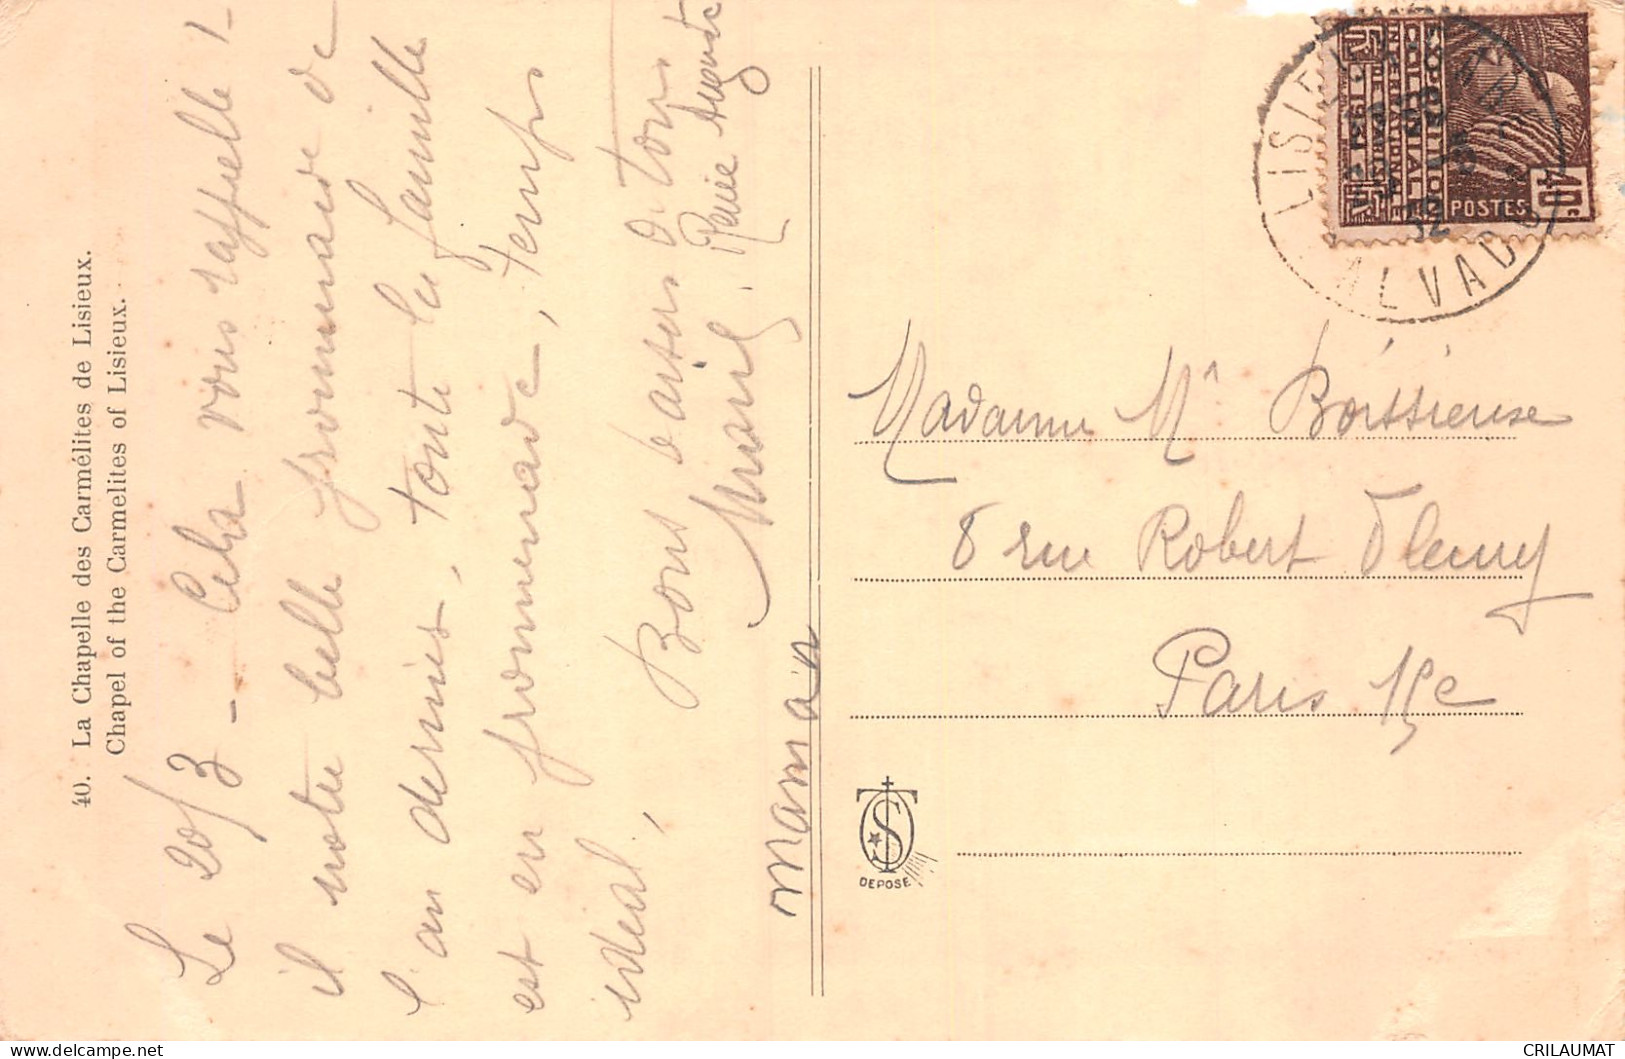 40. La Chapelle des Carmélites de Lisieux.
Chapel of the Carmelites of Lisieux.
Le 20/3 - Cela vous rappelle t
il notre belle promenade de
l'an dernier, toute la famille
est en promenade, temps
idéal, Bons baisers à tous
Marie Auguste
Maman
LISIEUX
CALVADOS
EXPOSITION
COLONIALE
INTERNATIONALE
PARIS 1931
POSTES
40c
32
Madame Boissieuse
8 rue Robert Fleury
Paris 15e
DEPOSE
CRILAUMAT